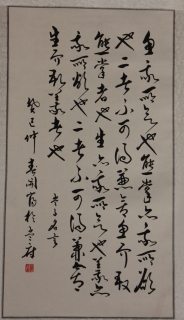 魚我所欲也熊掌亦我所欲
也二者不可得兼舍魚而取
熊掌者也生亦我所欲也義亦
我所欲也二者不可得兼舍
生而取義者也
孟子名言
癸巳仲春